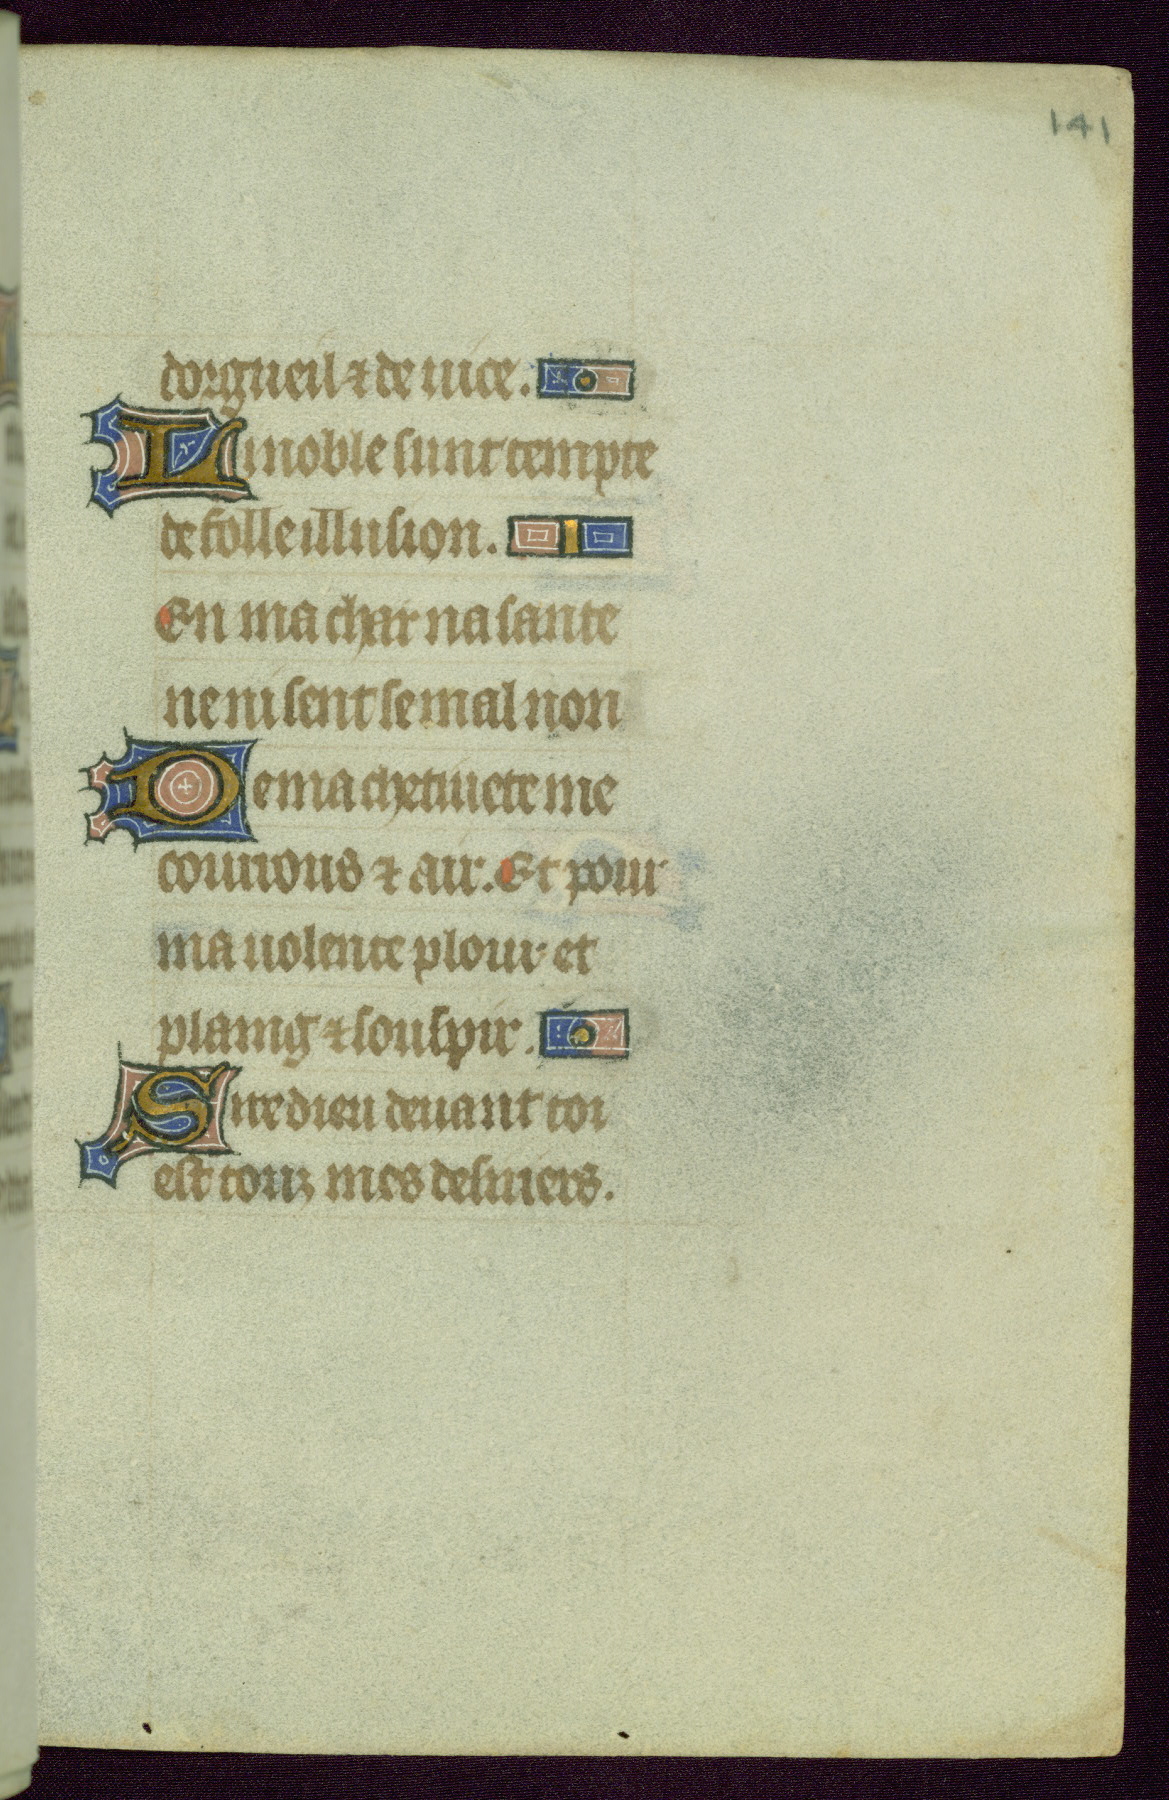 141
dorgueil ⁊ de uice.
Li noble sunt tempte
de folle illusion.
En ma char na sante
ne ni sent se mal non
De ma chetiuete me
courrous ⁊ air. Et pour
ma uolente plour et
plaing ⁊ souspir.
Sire dieu deuant toi
est touz mes desiriers.